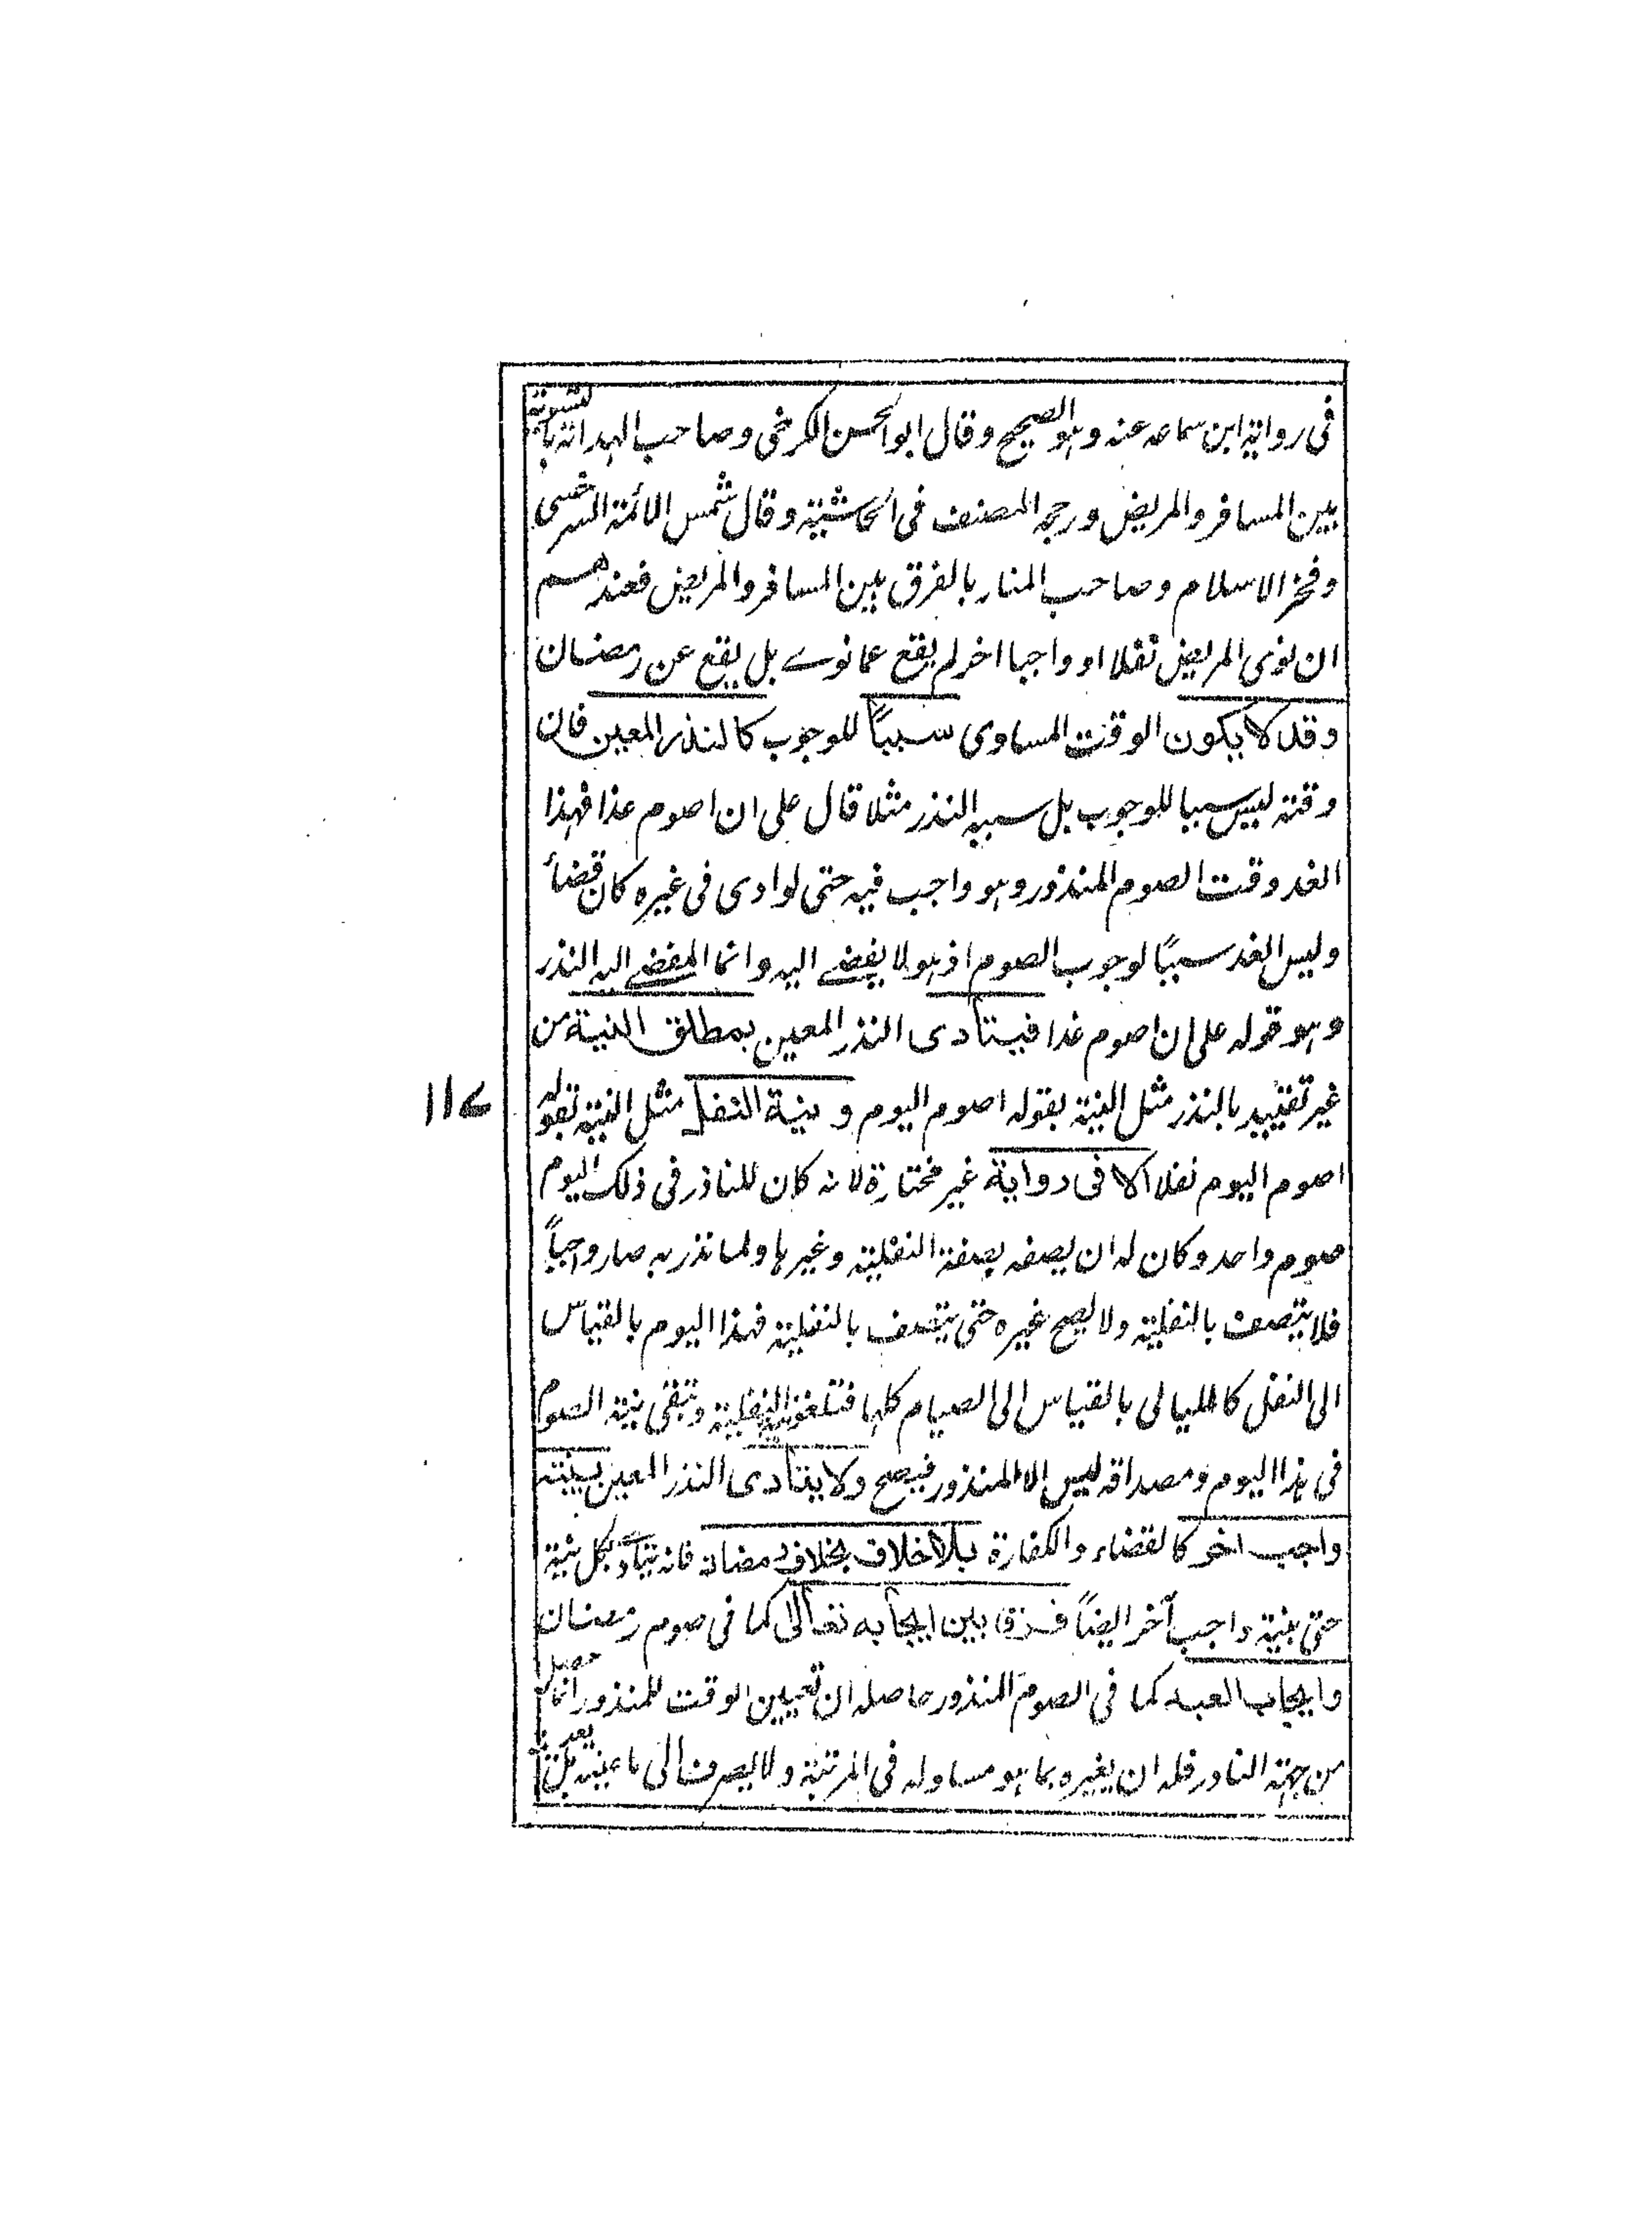 فى رواية ابن سماعه عنه وهو الصحيح وقال ابو الحسن الكرخى وصاحب الهداية بالتسوية
بين المسافر والمريض ورجحه المصنف فى الحاشية وقال شمس الائمة السرخسى
وفخر الاسلام وصاحب المنار بالفرق بين المسافر والمريض فعندهم
ان نوى المريض نفلا او واجبا اخر لم يقع عما نوے بل يقع عن رمضان
وقد لا يكون الوقت المساوى سبباً للوجوب كالنذر المعين فان
وقته ليس سببا للوجوب بل سببه النذر مثلا قال على ان اصوم غدا فهذا
الغد وقت الصوم المنذور وهو واجب فيه حتى لو ادى فى غيره كان قضأ
وليس الغد سبباً لوجوب الصوم اذ هو لا يفضے اليه وانما المفضے اليه النذر
وهو قوله على ان اصوم غدا فيتادى النذر المعين بمطلق النية من
غير تقييد بالنذر مثل النية بقوله اصوم اليوم و بنية النفل مثل النية بقوله
۱۱۷
اصوم اليوم نفلا الا فى رواية غير مختارة لانه كان للناذر فى ذلك اليوم
صوم واحد وكان له ان يصفه بصفة النفلية وغيرها ولما نذر به صار واجباً
فلا يتصف بالنفلية ولا يصح غيره حتى يتصف بالنفلية فهذا اليوم بالقياس
الى النفل كالليالى بالقياس الى الصيام كلها فتلغو النفلية وتبقى نية الصوم
فى هذا اليوم ومصداقه ليس الا المنذور فيصح ولا يتادى النذر المعين بنية
واجب اخر كالقضاء والكفارة بلا خلاف بخلاف رمضان فانه يتادى بكل نية
حتى بنية واجب آخر ايضاً فرق بين ايجابه تعالى كما فى صوم رمضان
وايجاب العبد كما فى الصوم المنذور حاصله ان تعيين الوقت للمنذور انما حصل
من جهة الناذر فله ان يغيره بما هو مساو له فى المرتبة ولا يصرف الى ما عينه بل